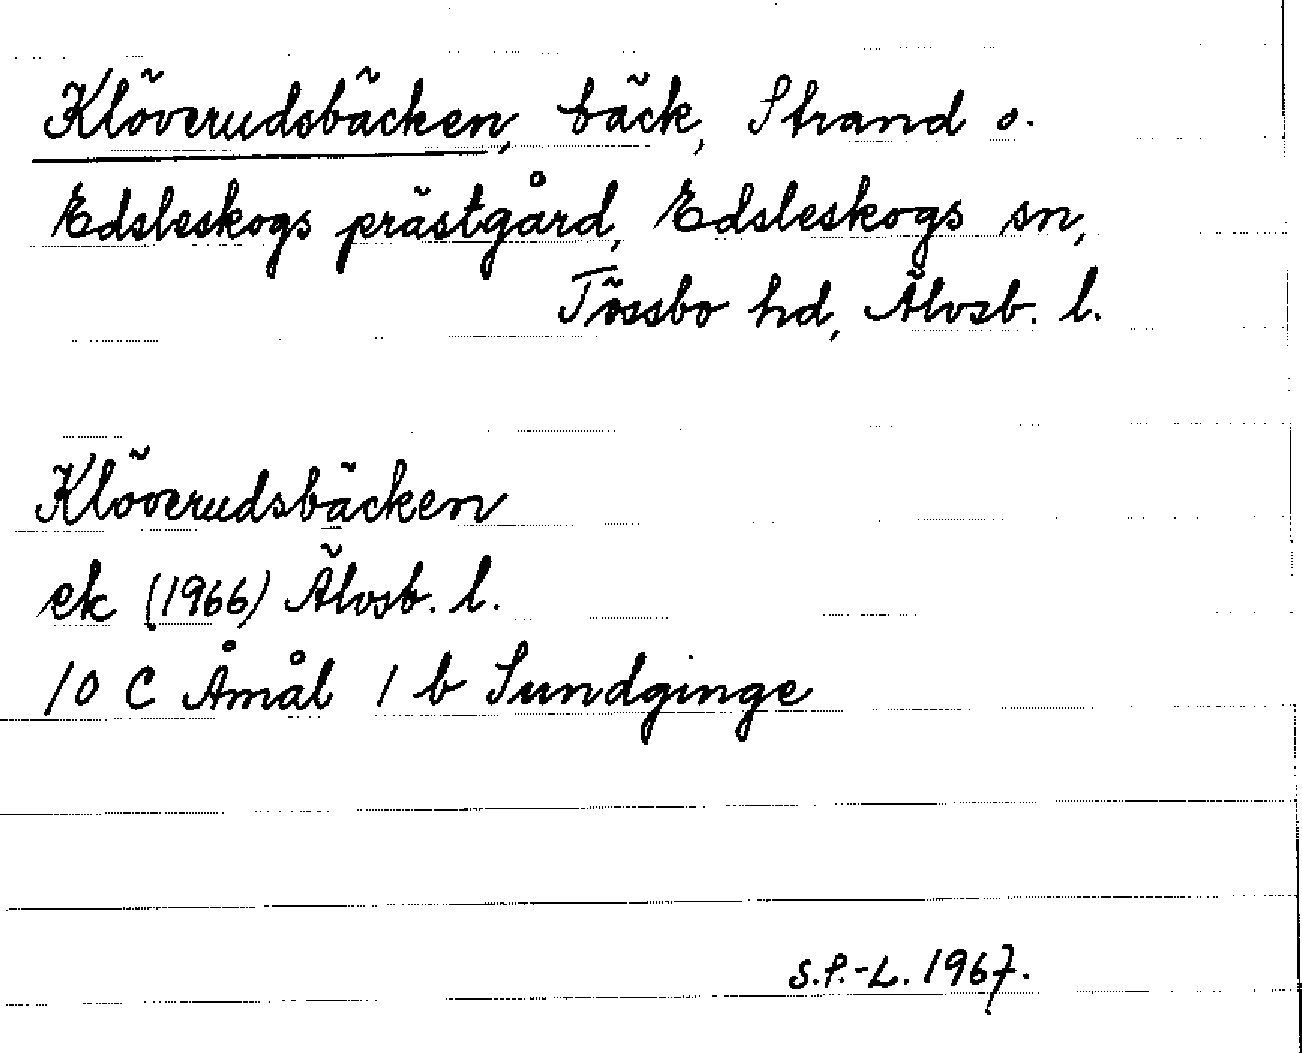 Klöverudsbäcken, bäck, Strand o.
Edsleskogs prästgård, Edsleskogs sn,
Tössbo hd, Älvsb. l.
Klöverudsbäcken
ek (1966) Älvsb. l.
10 C Åmål 1 b Sundginge
S.P.-L. 1967.